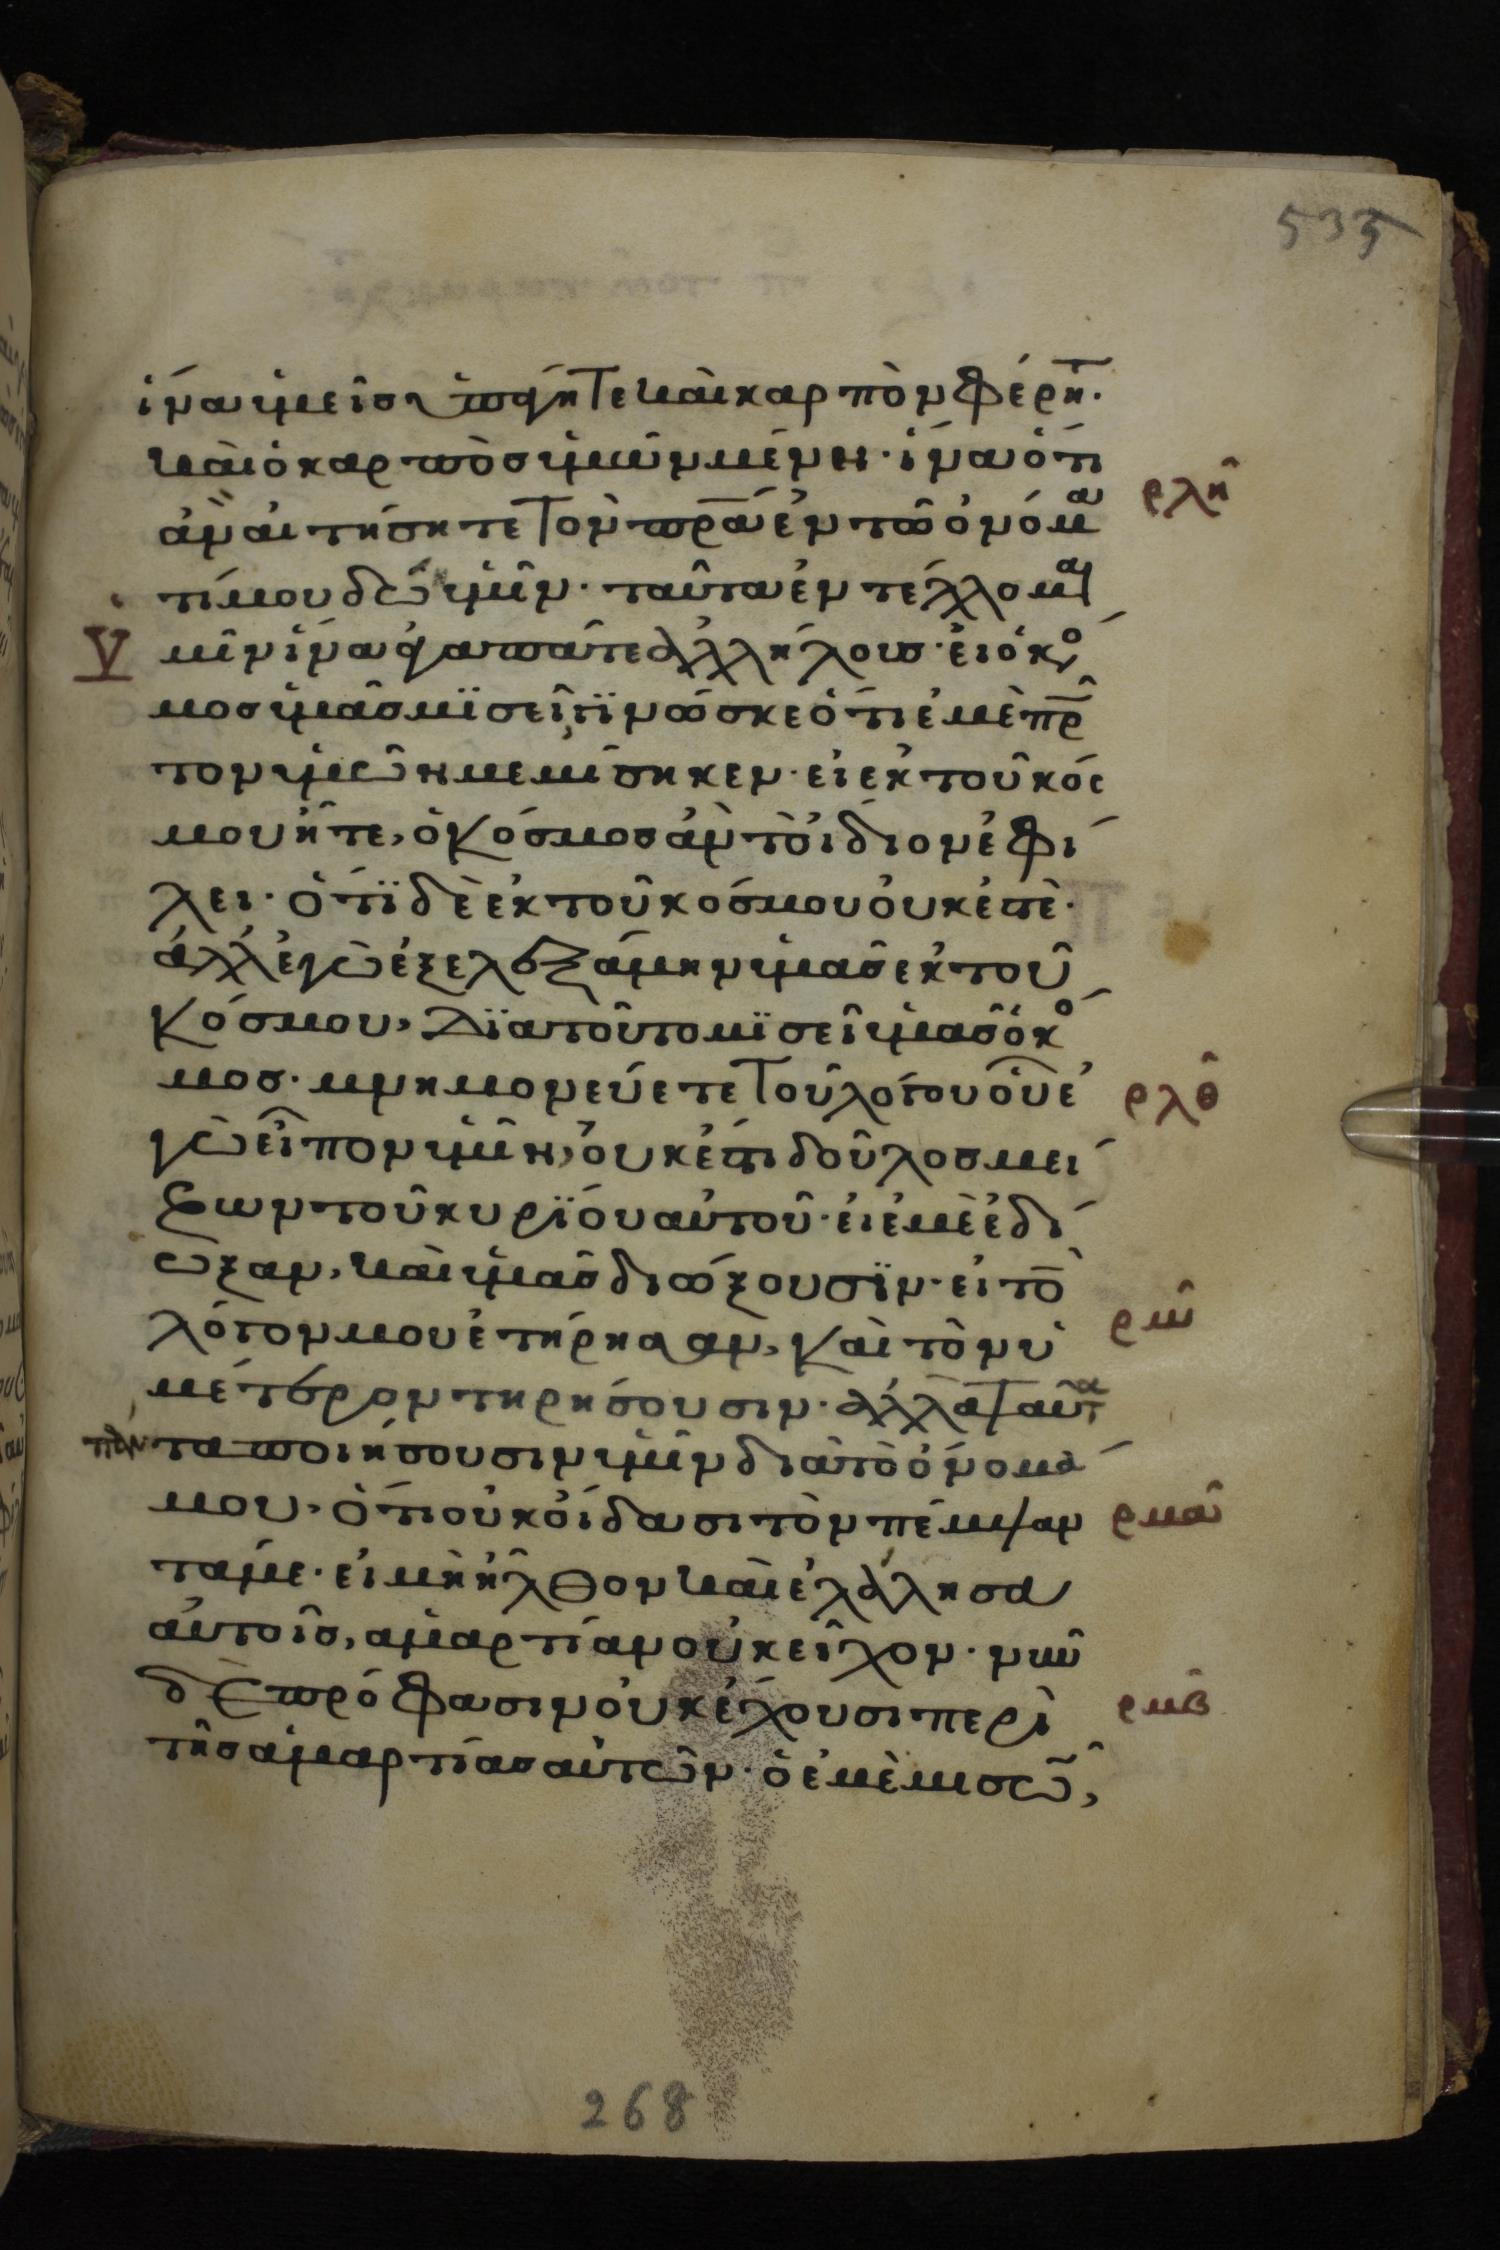 535
ἵνα ὑμεῖς ὑπάγητε καὶ καρπὸν φέρητ.
καὶ ὁ καρπὸς ὑμῶν μένη. ἵνα ὅτι
ρλη
ἂν αἰτήσητε τὸν πρα ἐν τῶ ὀνόμα
τί μου δῶ ὑμῖν. ταῦτα ἐντέλλομαι
Υ μῖν ἵνα ἀγαπᾶτε ἀλλήλους. εἰ ὁ κό
μος ὑμᾶς μϊσεῖ γϊνώσκε ὅτι ἐμὲ πρ
τον ὑμῶν μεμίσηκεν. εἰ ἐκ τοῦ κόσ
μου ἦτε, ὁ κόσμος ἂν τὸ ἴδιον ἐφί
λει. ὅτϊ δὲ ἐκ τοῦ κόσμου οὐκ ἐστὲ.
ἀλλ ἐγὼ ἐξελεξάμην ὑμᾶς ἐκ τοῦ
κόσμου, δϊατοῦτο μϊσεῖ ὑμᾶς ὁ κό
μος. μνημονεύετε τοῦ λόγου οὗ ἐ
ρλθ
γὼ εἶπον ὑμῖν, οὐκ ἔστι δοῦλος μεί
ζων τοῦ κυρϊου αὐτοῦ. εἰ ἐμὲ ἐδί
ωξαν, καὶ ὑμᾶς διώξουσϊν. εἰ τὸ
λόγον μου ἐτήρησαν, καὶ τὸν ὑ
ρμ
μέτερον τηρήσουσιν. ἀλλὰ ταῦτα
πάντα ποιήσουσιν ὑμῖν διὰ τὸ ὄνομά
μου. ὅτι οὐκ οἴδασι τὸν πέμψαν
ρμα
τά με. εἰ μὴ ἦλθον καὶ ἐλάλησα
αὐτοῖς, ἁμαρτίαν οὐκ εἶχον. νῦν
δὲ πρόφασιν οὐκ ἔχουσι περὶ
ρμβ
τῆς ἁμαρτίας αὐτῶν. ὁ ἐμὲ μισῶ,
268